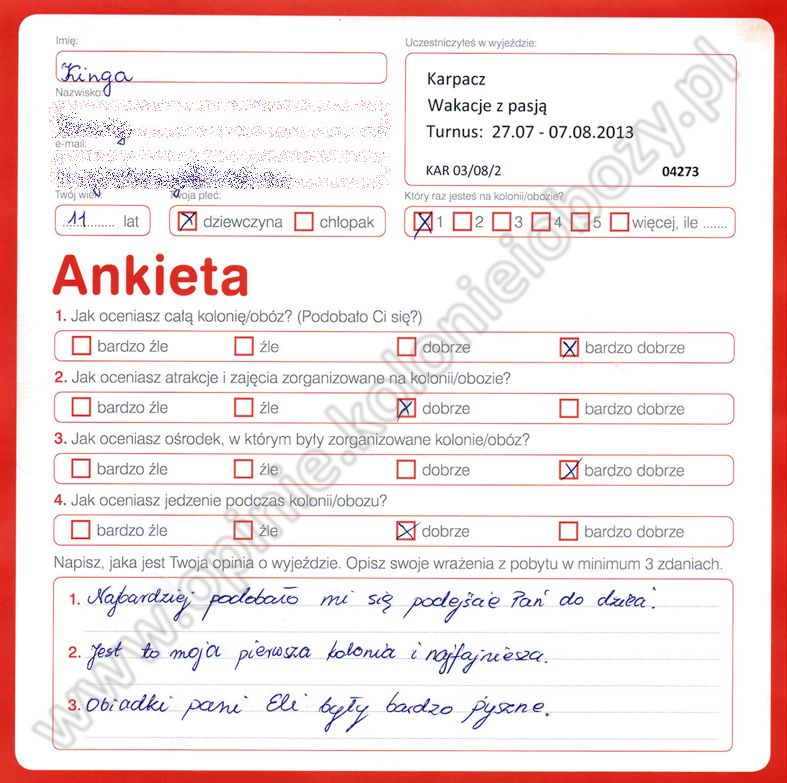 Imię:
Kinga
Uczestniczyłeś w wyjeździe:
Karpacz
Wakacje z pasją
Turnus: 27.07 - 07.08.2013
KAR 03/08/2 04273
Nazwisko:
e-mail:
Twój wiek:
11 lat
Twoja płeć:
dziewczyna chłopak
Który raz jesteś na kolonii/obozie?
1 2 3 4 5 więcej, ile .......
Ankieta
1. Jak oceniasz całą kolonię/obóz? (Podobało Ci się?)
bardzo źle źle dobrze bardzo dobrze
2. Jak oceniasz atrakcje i zajęcia zorganizowane na kolonii/obozie?
bardzo źle źle dobrze bardzo dobrze
3. Jak oceniasz ośrodek, w którym były zorganizowane kolonie/obóz?
bardzo źle źle dobrze bardzo dobrze
4. Jak oceniasz jedzenie podczas kolonii/obozu?
bardzo źle źle dobrze bardzo dobrze
Napisz, jaka jest Twoja opinia o wyjeździe. Opisz swoje wrażenia z pobytu w minimum 3 zdaniach.
1. Najbardziej podobało mi się podejście Pań do dzieci.
2. Jest to moja pierwsza kolonia i najfajniesza.
3. Obiadki pani Eli były bardzo pyszne.
www.opinie.kolonieiobozy.pl